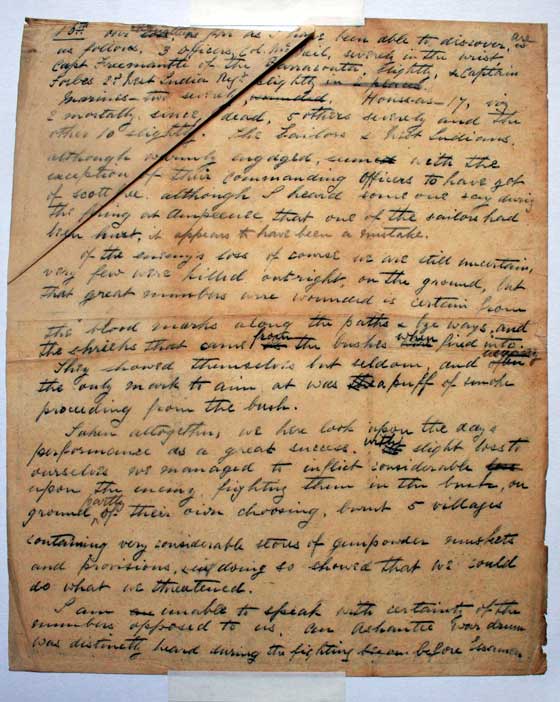 15th our as far as I have been able to discover, are
as follows. 3 Officers, Col. McNeil, severely in the wrist
Capt Freemantle of the Barracouta, slightly, & Captain
Forbes 2d West India Regt. slightly in 2 places.
Marines – two severely wounded. Houssas – 17, viz
2 mortally, since dead, 5 others severely and the
other 10 slightly. The Sailors & West Indians,
although warmly engaged, seem with the
exception of their commanding officers to have got
off scott free. although I heard some one say during
the firing at Ampeence that one of the sailors had
been hurt, it appears to have been a mistake.
Of the enemy's loss of course we are still uncertain,
very few were killed outright, on the ground, but
that great numbers were wounded is certain from
the blood marks along the paths & bye ways, and
the shrieks that came from the bushes when fired into.
They showed themselves but seldom, and often
the only mark to aim at was a puff of smoke
proceeding from the bush.
Taken altogether, we here look upon the day's
performance as a great success. With slight loss to
ourselves we managed to inflict considerable loss
upon the enemy, fighting them in the bush, on
ground partly of their own choosing, burnt 5 villages
containing very considerable stores of gunpowder muskets
and provisions, and doing so showed that we could
do what we threatened.
I am unable to speak with certainty of the
numbers opposed to us. An Ashantee War drum
was distinctly heard during the fighting before Essaman